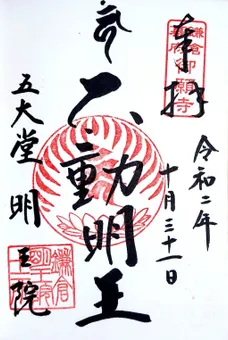 奉拝
鎌倉
幕府
御願寺
令和二年
十月三十一日
不動明王
五大堂
明王院
鎌倉
明王院